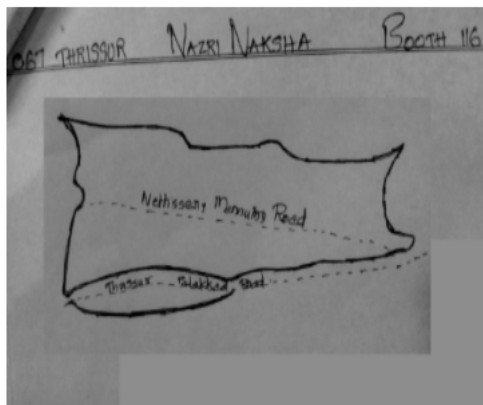 067 THRISSUR NAZRI NAKSHA BOOTH 116
Nethissery Mannuthy Road
Thrissur Palakkad Road